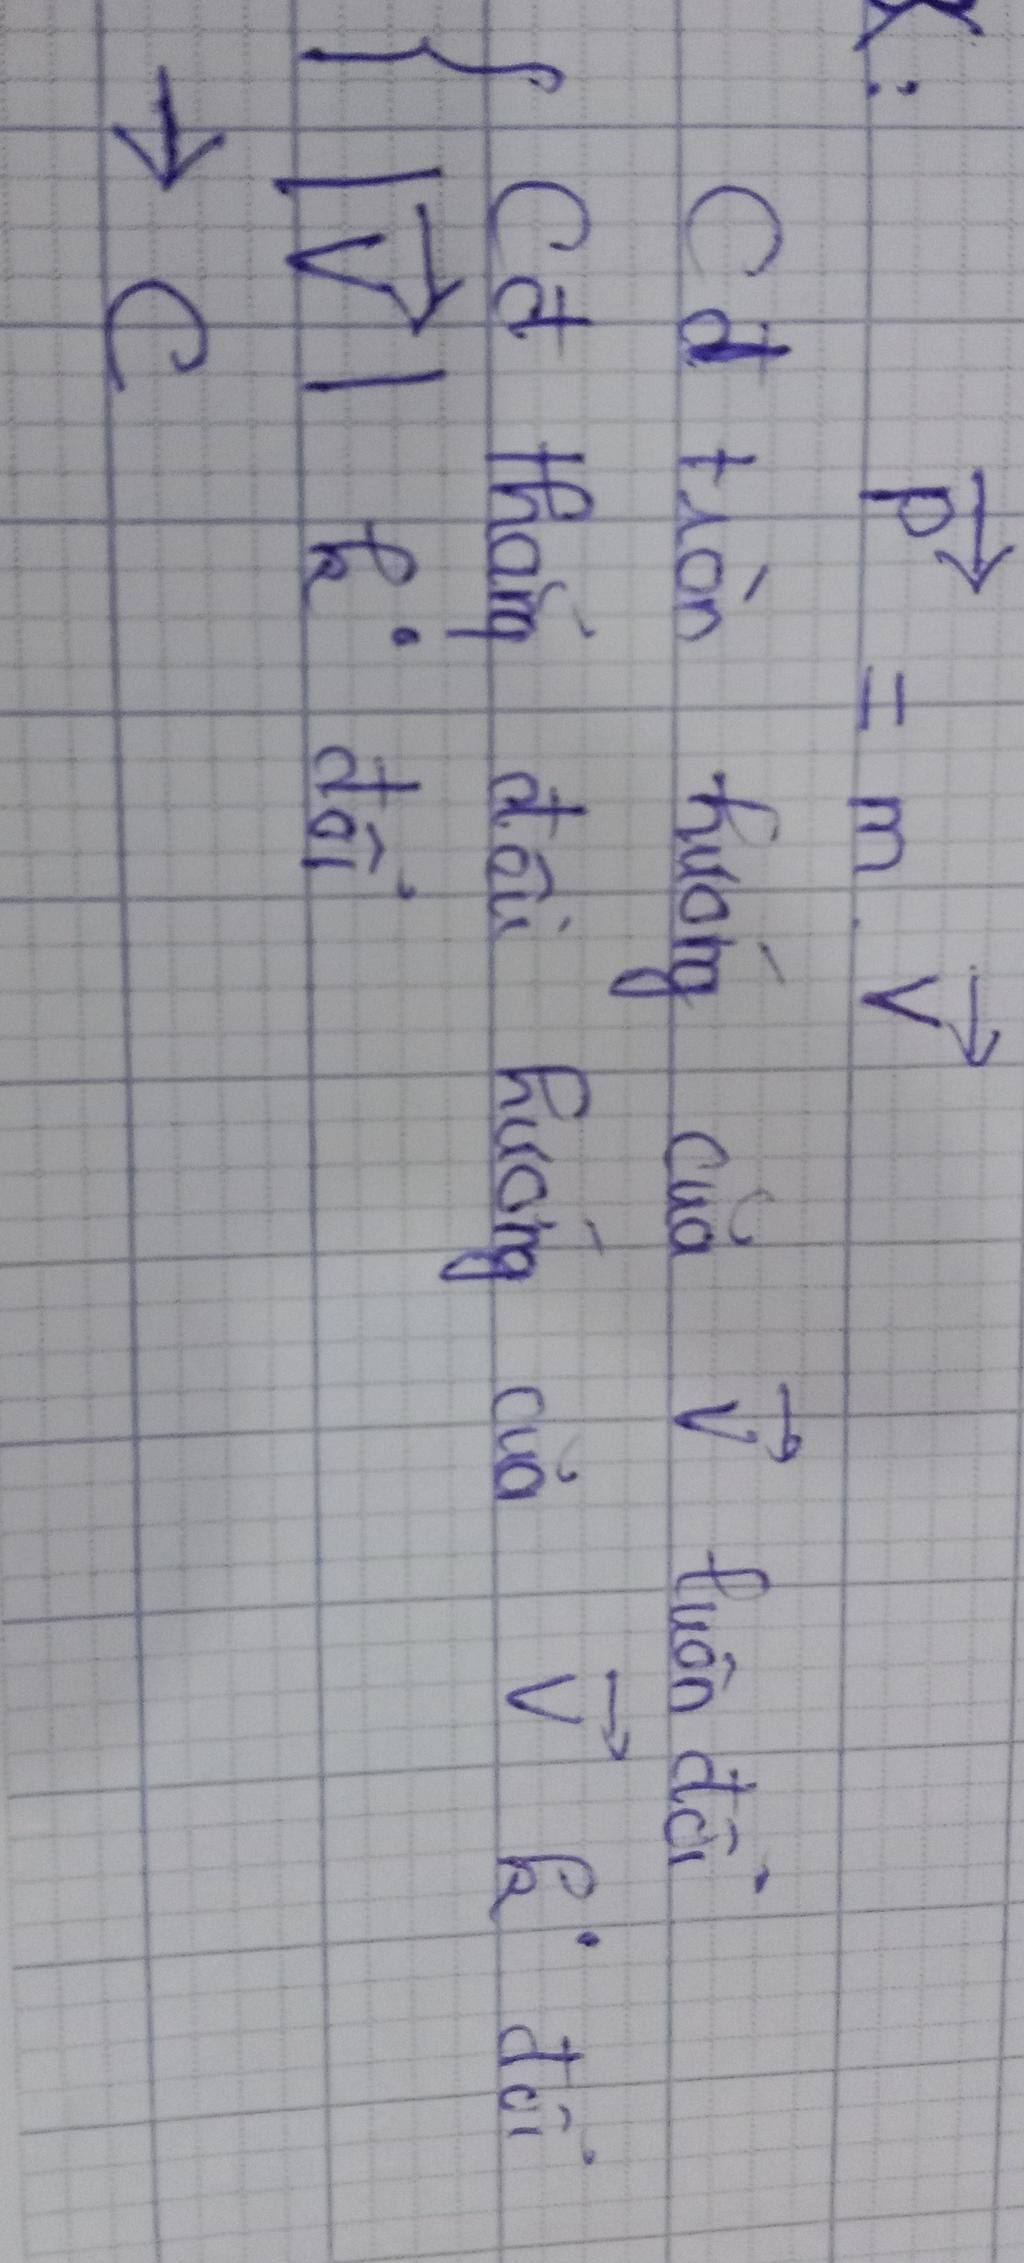 p⃗ = m . v⃗
Cđ tròn hướng của v⃗ luôn đổi
Cđ thẳng đều hướng của v⃗ k. đổi
{ |v⃗| k. đổi
→ C